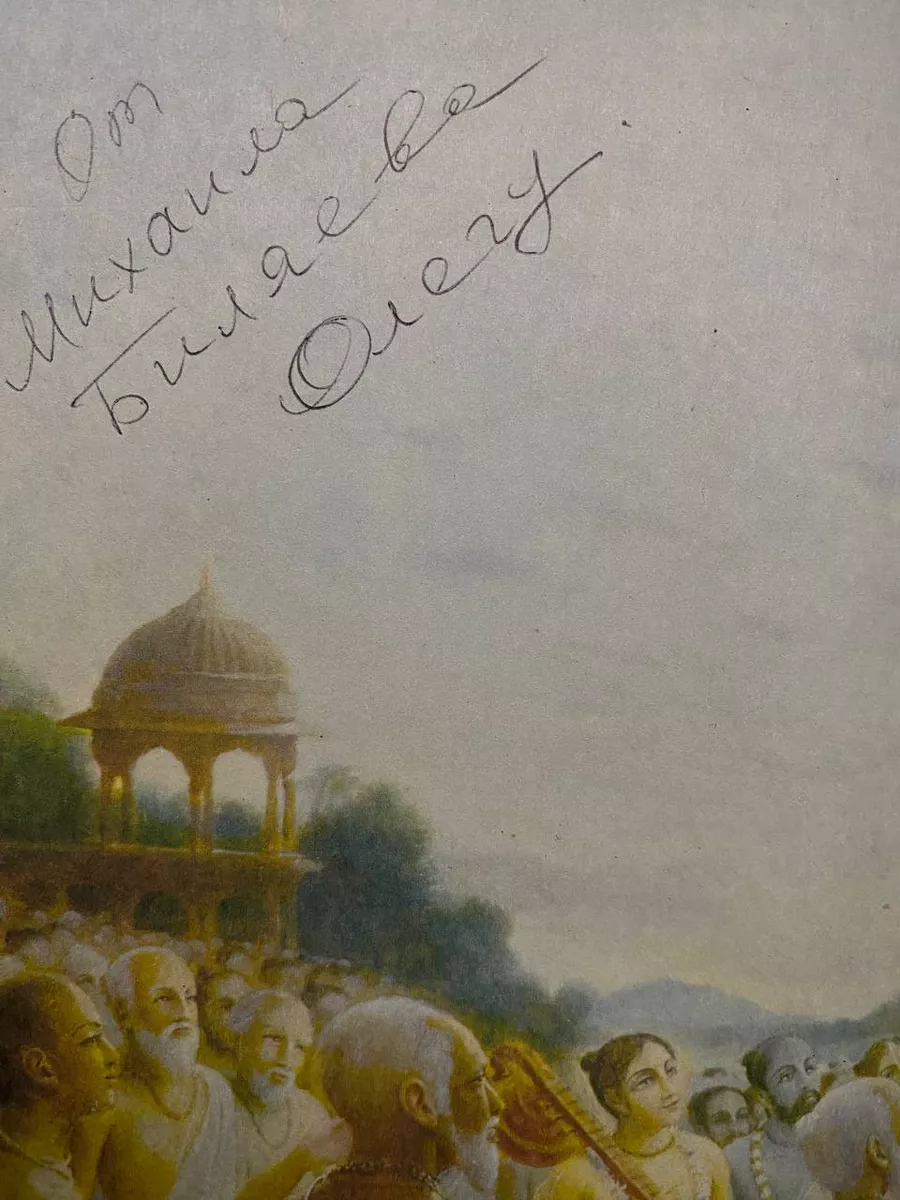 От
Михаила
Биляева
Олегу.